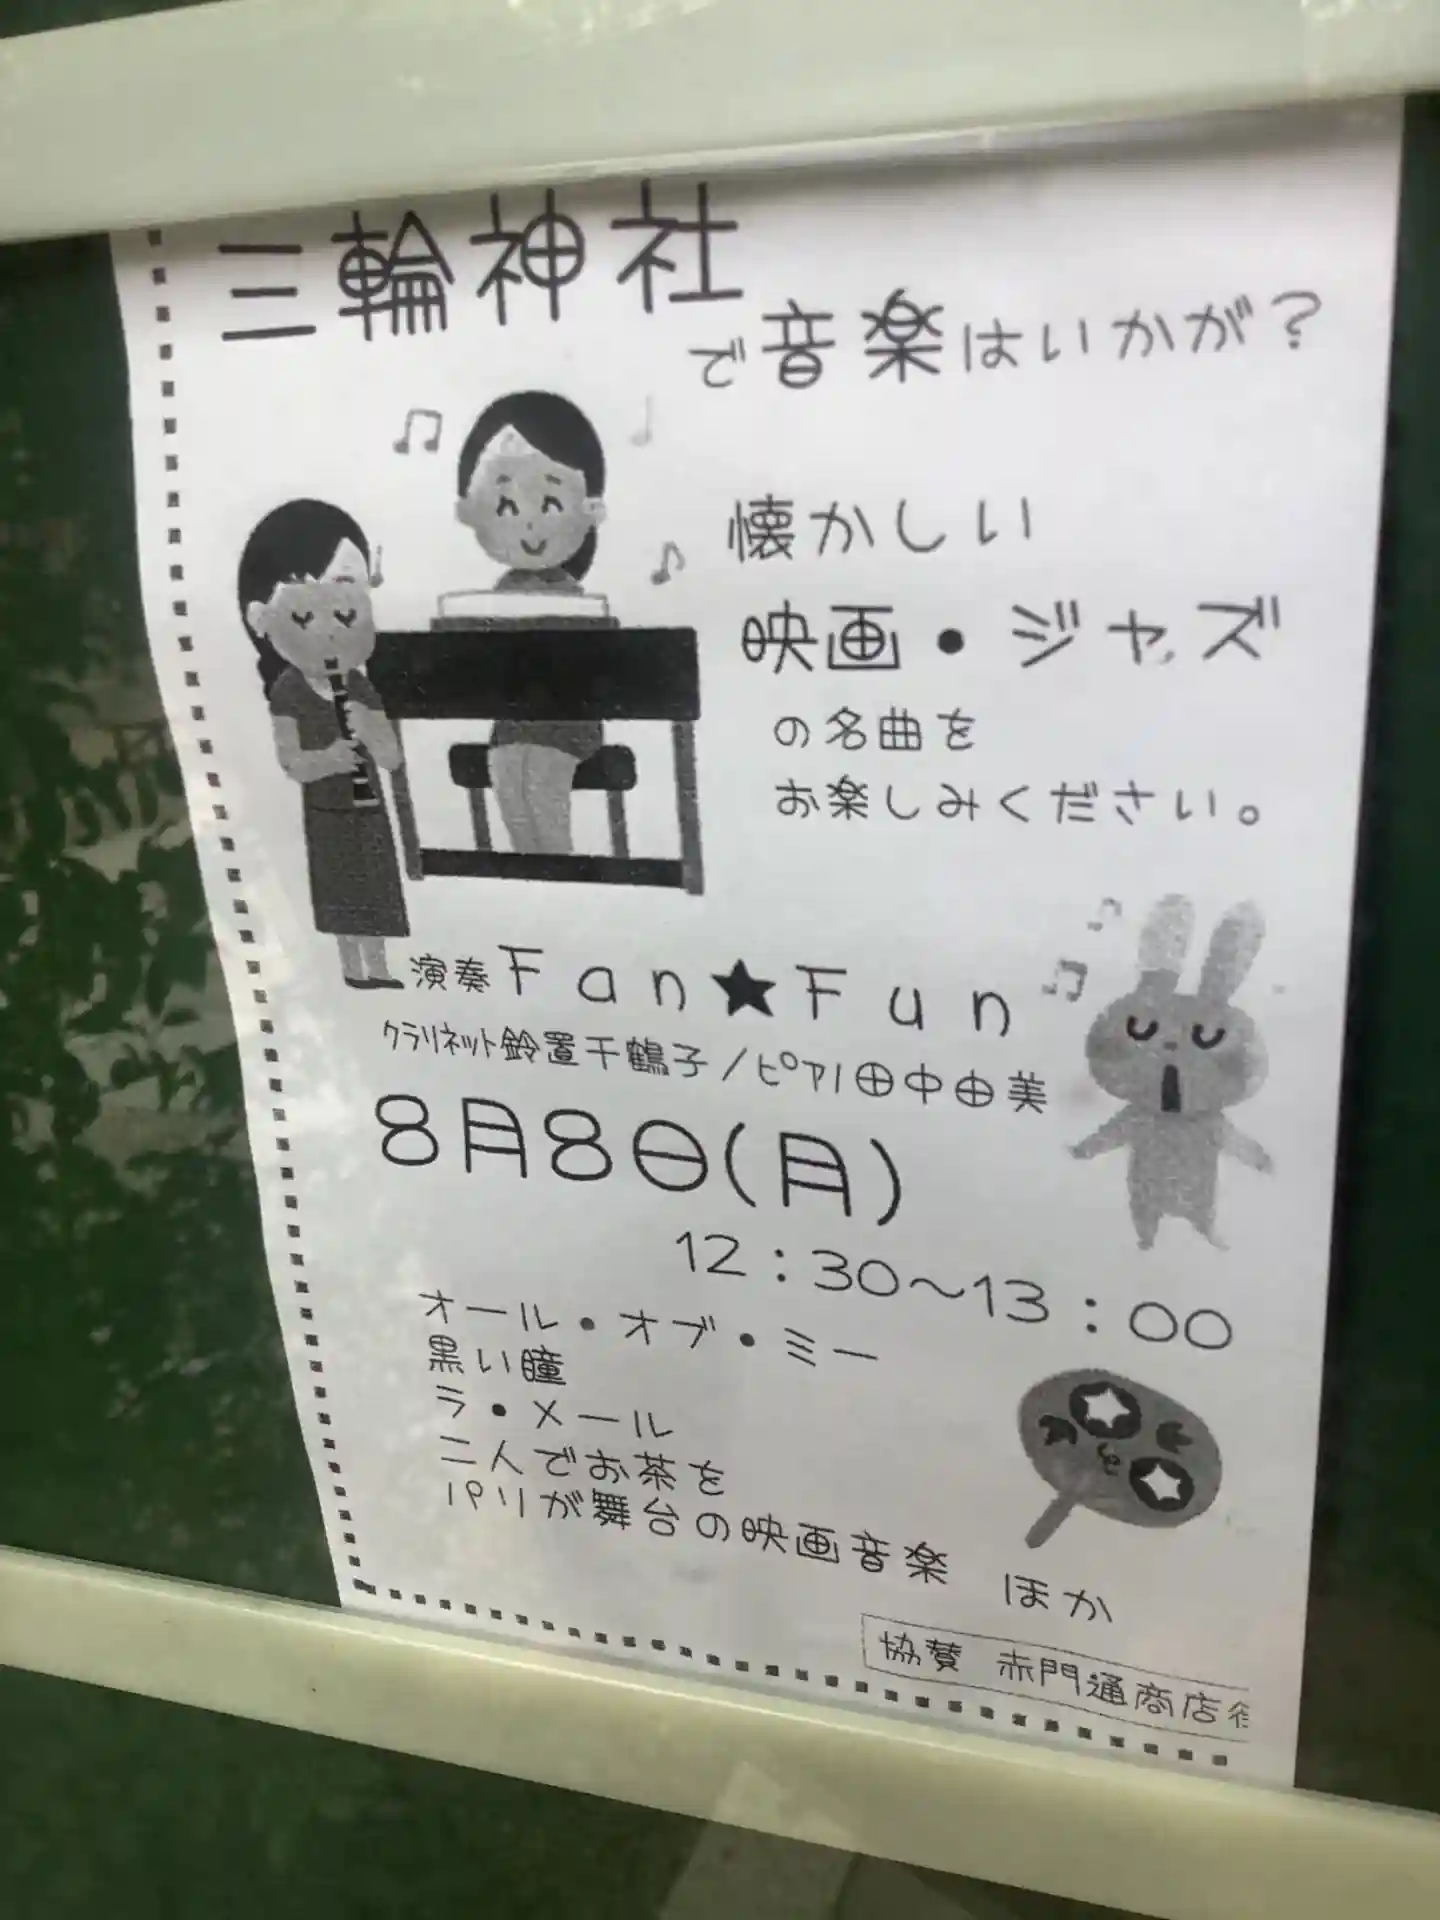 三輪神社
で音楽はいかが？
懐かしい
映画・ジャズ
の名曲を
お楽しみください。
演奏Fan★Fun
クラリネット鈴置千鶴子/ピアノ田中由美
8月8日(月)
12：30～13：00
オール・オブ・ミー
黒い瞳
ラ・メール
二人でお茶を
パリが舞台の映画音楽 ほか
協賛 赤門通商店